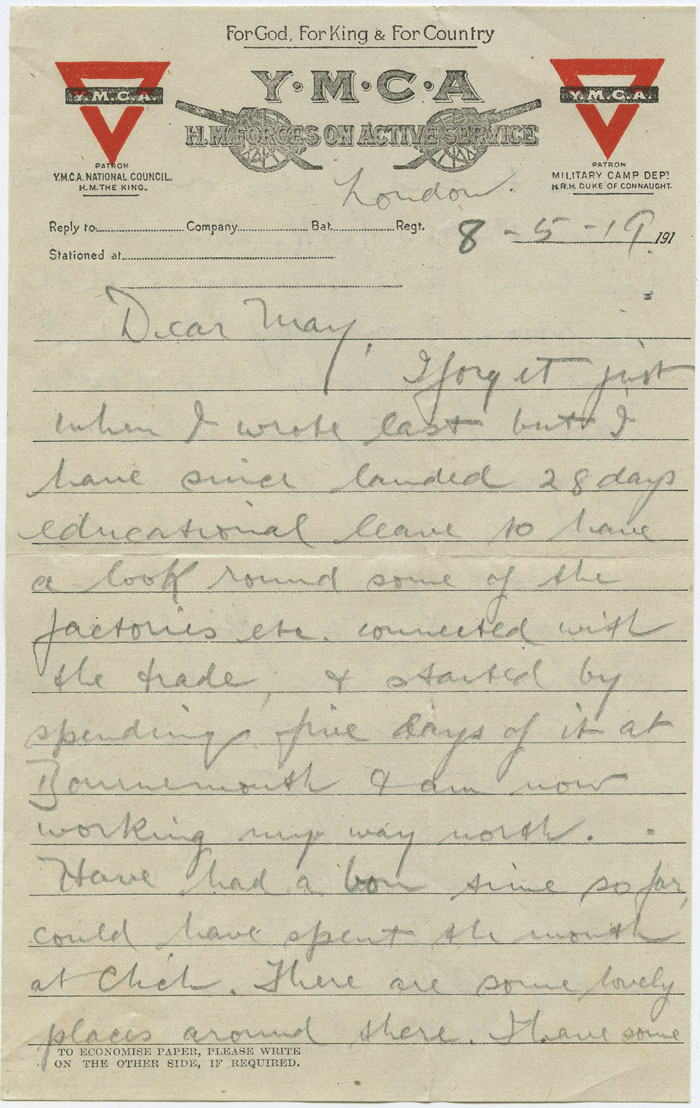 For God, For King & For Country
Y·M·C·A
H.M. FORCES ON ACTIVE SERVICE
Y.M.C.A.
Y.M.C.A.
PATRON
Y.M.C.A. NATIONAL COUNCIL.
H.M. THE KING.
PATRON
MILITARY CAMP DEPT.
H.R.H. DUKE OF CONNAUGHT.
London.
Reply to Company Bat. Regt. 8-5-19. 191
Stationed at
Dear May,
I forget just
when I wrote last but I
have since landed 28 days
educational leave to have
a look round some of the
factories etc. connected with
the trade, & started by
spending five days of it at
Bournemouth & am now
working my way north.
Have had a bon time so far,
could have spent the month
at . There are some lovely
places around there. I have some
TO ECONOMISE PAPER, PLEASE WRITE
ON THE OTHER SIDE, IF REQUIRED.